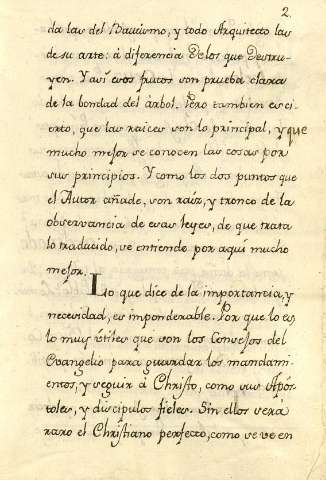 2.
da las del Bautismo, y todo Arquitecto las
de su arte: à diferencia Delos que Destru-
yen. Y asi esos frutos son prueba clara
de la bondad del árbol. Pero tambien es ci-
erto, que las raices son lo principal, y que
mucho mejor se conocen las cosas por
sus principios. Y como los dos puntos que
el Autor añade, son raiz, y tronco de la
observancia de esas leyes, de que trata
lo traducido, se entiende por aqui mucho
mejor.
Lo que dice de la importancia, y
necesidad, es imponderable. Por que lo es
lo muy útiles que son los Consejos del
Evangelio para guardar los mandami-
entos, y seguir à Christo, como sus Após-
toles, y discipulos fieles. Sin ellos será
raro el Christiano perfecto, como se ve en